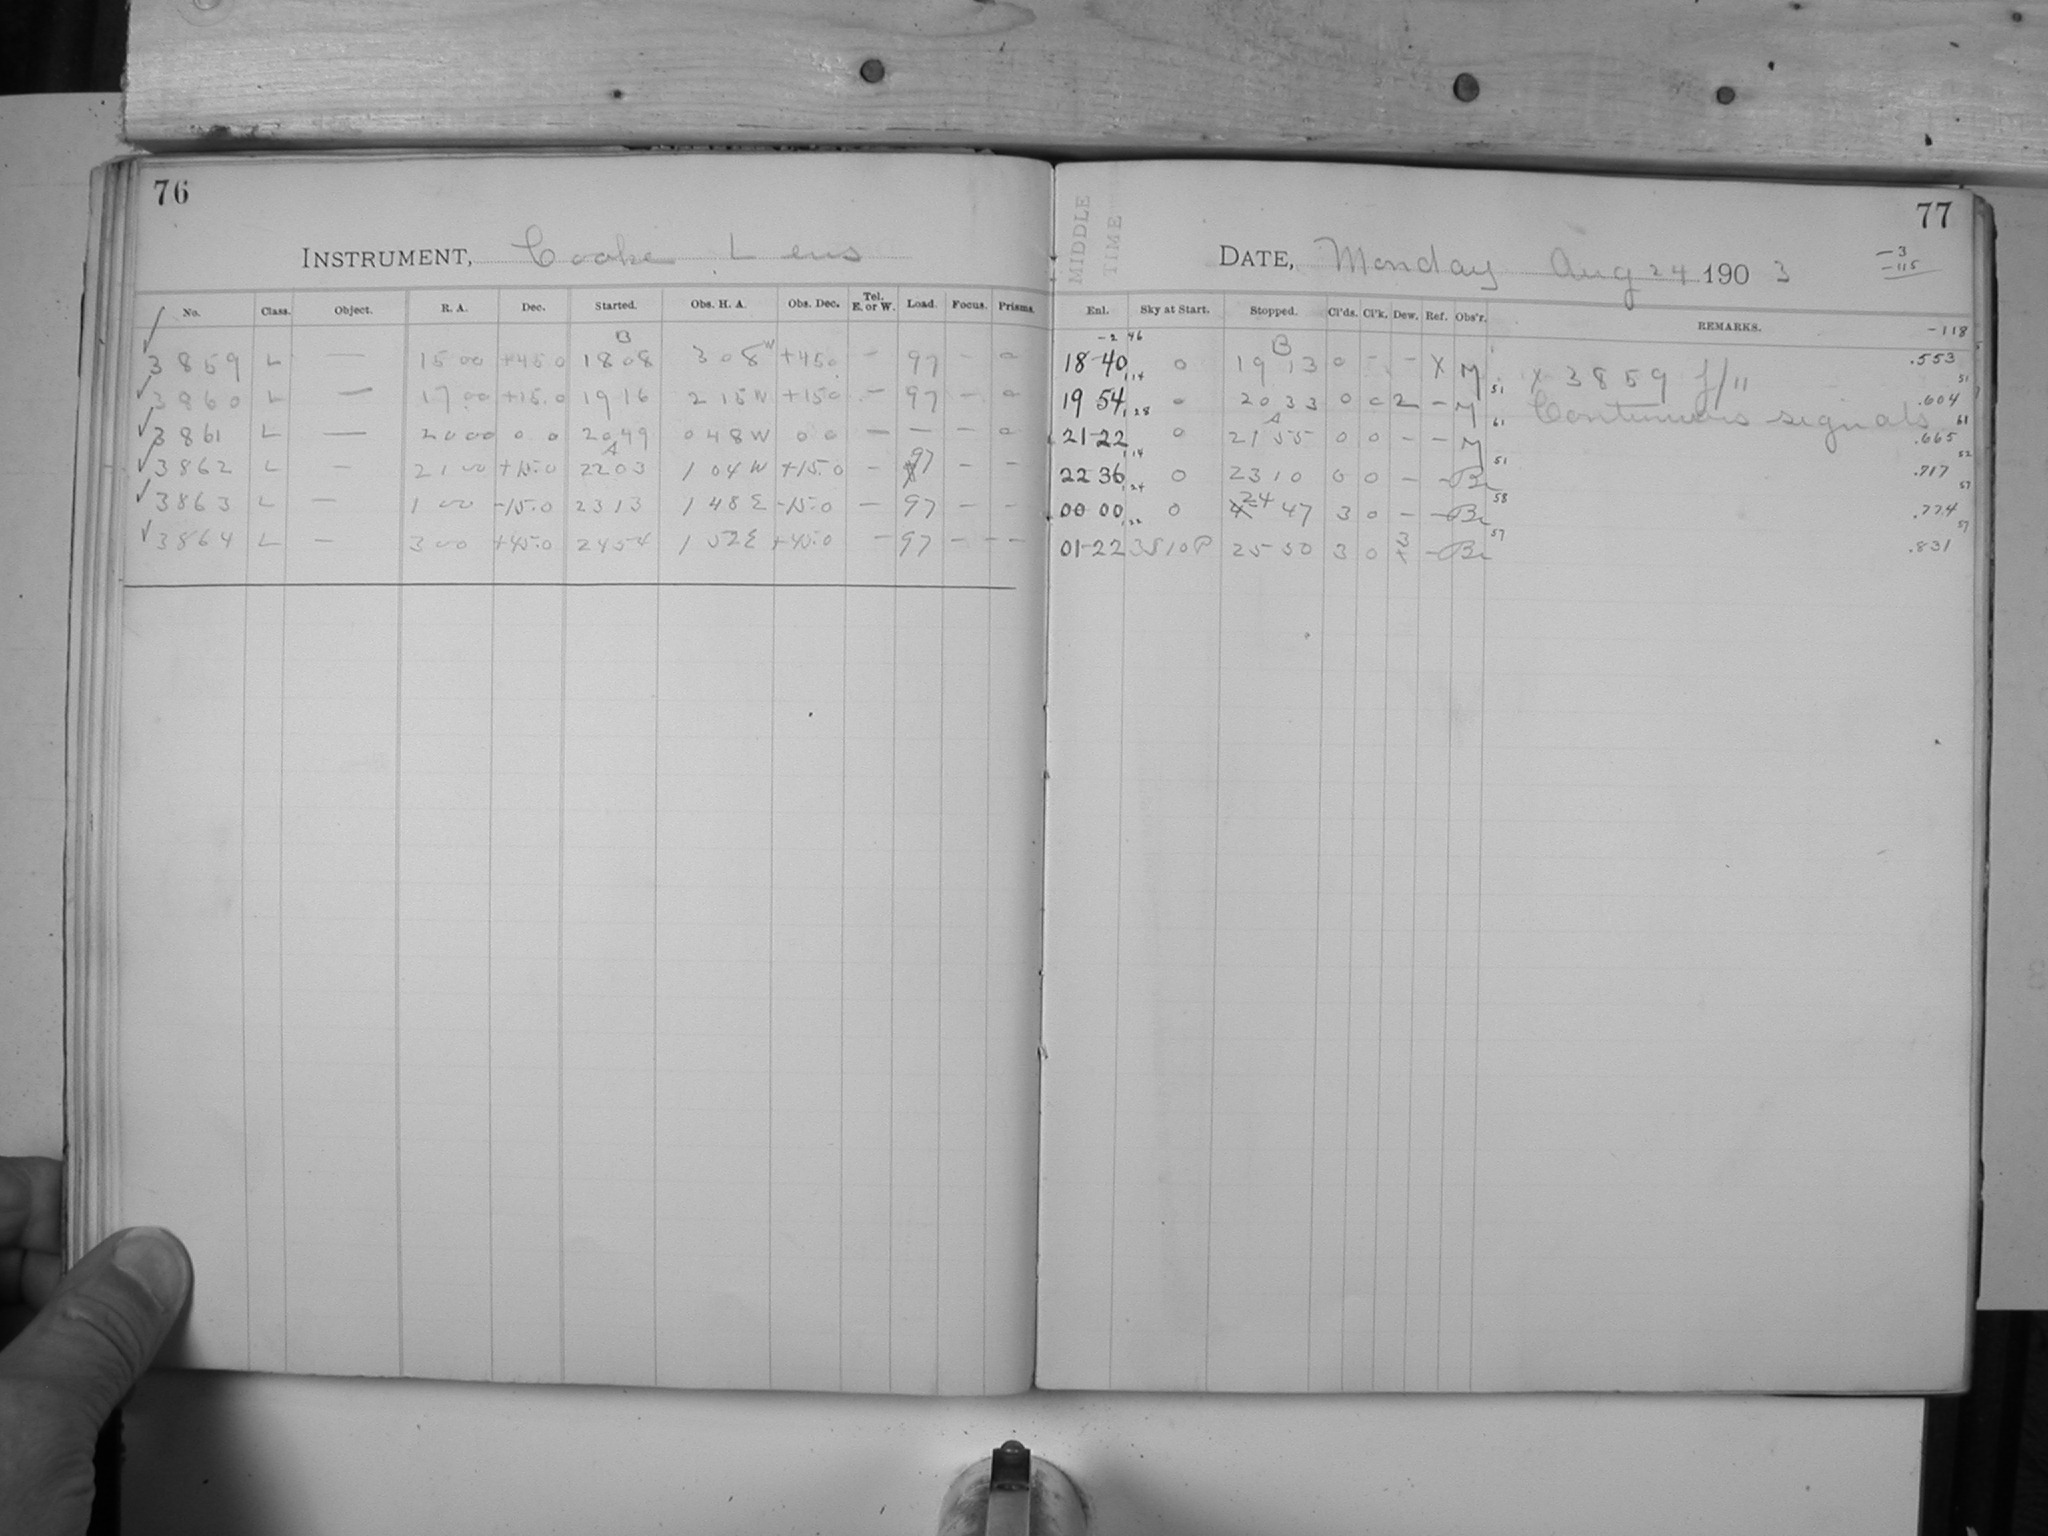 76
INSTRUMENT, Cooke Lens
No. Class. Object. R. A. Dec. Started. Obs. H. A. Obs. Dec. Tel. E. or W. Load. Focus. Prisms.
B
✓ 3859 L — 15 00 +45 0 18 08 3 08 W +45 0 — 97 — 0
✓ 3860 L — 17 00 +15.0 19 16 2 15 W +15 0 — 97 — 0
✓ 3861 L — 20 00 0 0 20 49 0 48 W 0 0 — — — 0
A
✓ 3862 L — 21 00 +15.0 22 03 1 04 W +15.0 — 97 — —
✓ 3863 L — 1 00 -15.0 23 13 1 48 E -15.0 — 97 — —
✓ 3864 L — 3 00 +45.0 24 54 1 52 E +45.0 — 97 — —
77
MIDDLE
TIME
DATE, Monday Aug 24 1903
-3
-115
Enl. Sky at Start. Stopped. Cl'ds. Cl'k. Dew. Ref. Obs'r. REMARKS. -118
-2 46 B
18-40 0 19 13 0 - - X M x 3859 f/11 .553
1,14 51 51
19 54 0 20 33 0 0 2 - M Continuous signals .604
1,28 A 61 61
21-22 0 21 55 0 0 - - M .665
1,14 51 52
22 36 0 23 10 0 0 - - Br .717
1,24 58 57
00 00 0 24 47 3 0 - - Br .774
1,22 57 57
01-22 3510P 25 50 3 0 3 - Br .831